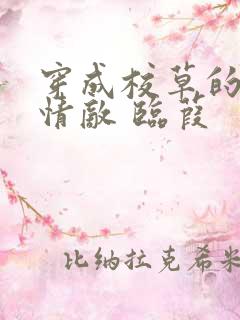 穿成校草的
情敌 临葭
比纳拉克希米